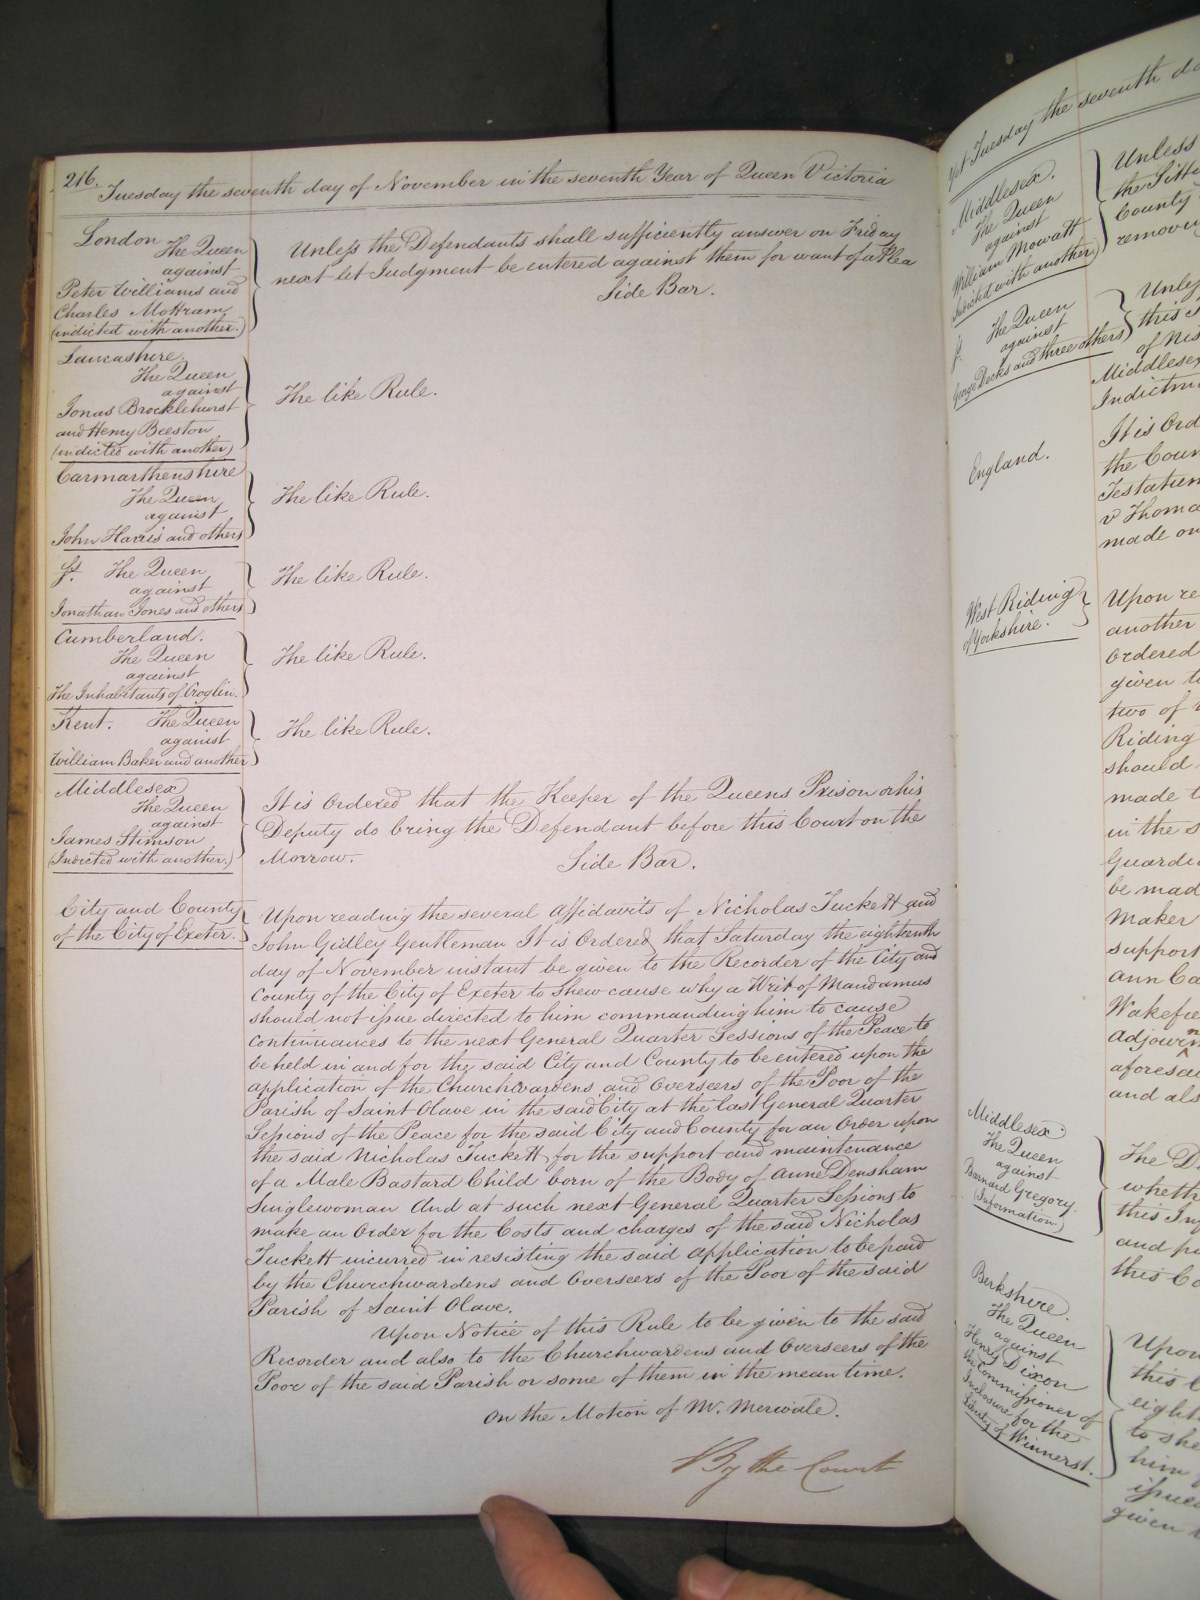 216.
Tuesday the seventh day of November in the seventh Year of Queen Victoria
London The Queen
against
Peter Williams and
Charles Mottram
(indicted with another.)
Unless the Defendants shall sufficiently answer on Friday
next let Judgment be entered against them for want of a Plea
Side Bar.
Lancashire.
The Queen
against
Jonas Brocklehurst
and Henry Beeston
(indicted with another)
The like Rule.
Carmarthenshire
The Queen
against
John Harris and others
The like Rule.
The Queen
against
Jonathan Jones and others
The like Rule.
Cumberland.
The Queen
against
The Inhabitants of Croglin.
The like Rule.
Kent. The Queen
against
William Baker and another
The like Rule.
Middlesex
The Queen
against
James Stimson
(Indicted with another.)
It is Ordered that the Keeper of the Queens Prison or his
Deputy do bring the Defendant before this Court on the
Morrow. Side Bar.
City and County
of the City of Exeter.
Upon reading the several Affidavits of Nicholas Tuckett and
John Gidley Gentleman It is Ordered that Saturday the eighteenth
day of November instant be given to the Recorder of the City and
County of the City of Exeter to shew cause why a Writ of Mandamus
should not issue directed to him commanding him to cause
continuances to the next General Quarter Sessions of the Peace to
be held in and for the said City and County to be entered upon the
application of the Churchwardens and Overseers of the Poor of the
Parish of Saint Olave in the said City at the last General Quarter
Sessions of the Peace for the said City and County for an Order upon
the said Nicholas Tuckett for the support and maintenance
of a Male Bastard Child born of the Body of Anne Densham
Singlewoman And at such next General Quarter Sessions to
make an Order for the Costs and charges of the said Nicholas
Tuckett incurred in resisting the said application to be paid
by the Churchwardens and Overseers of the Poor of the said
Parish of Saint Olave.
Upon Notice of this Rule to be given to the said
Recorder and also to the Churchwardens and Overseers of the
Poor of the said Parish or some of them in the mean time.
On the Motion of Mr. Merivale.
By the Court
Yet Tuesday the seventh
Middlesex.
The Queen
against
William Mowatt
(indicted with another)
Unless
the Sitt
County
remov
The Queen
against
George Decks and three others
Unles
this
of Nis
Middlesex
Indictm
England.
It is Ord
the Coun
Testatum
v Thoma
made on
West Riding
of Yorkshire.
Upon re
another
Ordered
given t
two of
Riding
should
made t
in the s
Guardi
be mad
Maker
support
Ann Ca
Wakefie
Adjourn
aforesa
and als
Middlesex
The Queen
against
Barnard Gregory.
(Information.)
The D
wheth
this In
and p
this Co
Berkshire.
The Queen
against
Henry Dixon
the Commissioner of
Inclosure for the
Liberty of Winnerst.
Upon
this
eight
to she
him
issue
given